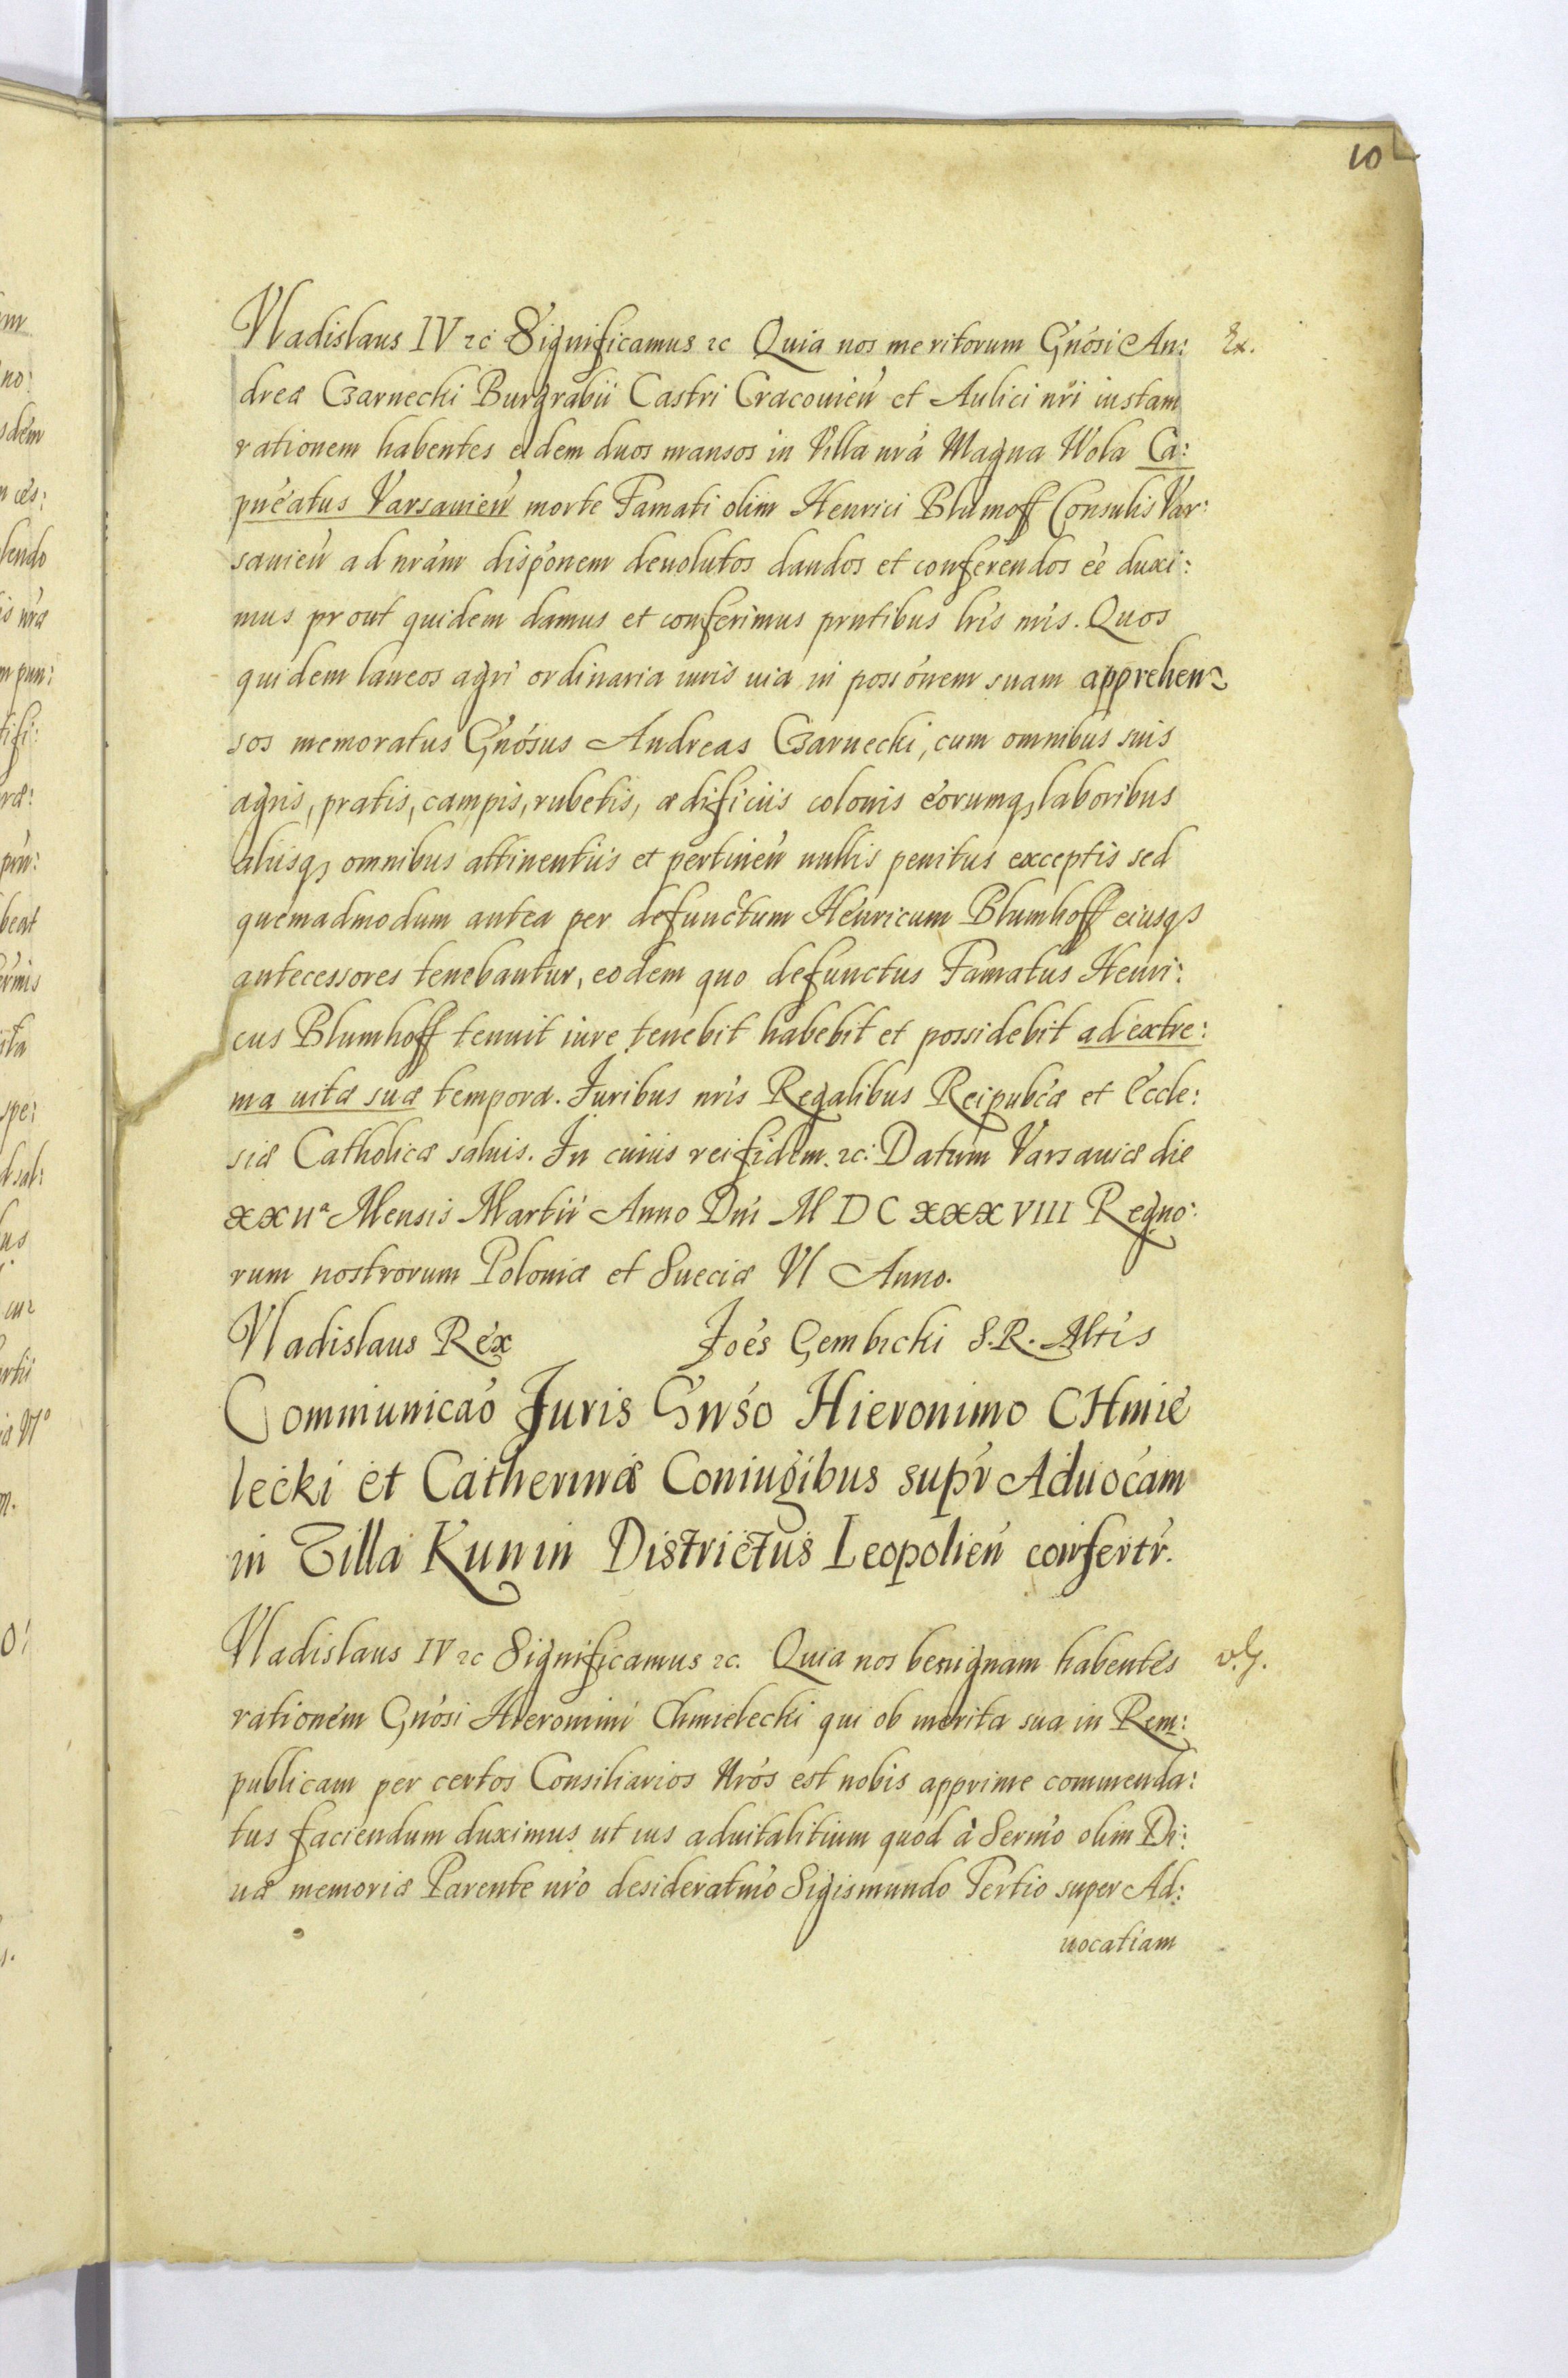 10
Vladislaus IV ꝛc Significamus ꝛc Quia nos meritorum Gnósi An: Ex.
dreæ Czarnecki Burgrabii Castri Cracouień et Aulici nri iustam
rationem habentes eidem duos mansos in Villa nrá Magna Wola Ca:
pnéatus Varsauień morte Famati olim Henrici Blumoff Consulis Var:
sauień ad nrám dispónem deuolutos dandos et conferendos eé duxi:
mus prout quidem damus et conferimus prntibus lris nris. Quos
quidem laneos agri ordinaria iuris uia in possónem suam apprehen:
sos memoratus Gnósus Andreas Czarnecki, cum omnibus suis
agris, pratis, campis, rubetis, ædificiis colonis eorumq, laboribus
aliisq, omnibus attinentiis et pertineń nullis penitus exceptis sed
quemadmodum antea per defunctum Henricum Blumhoff eiusq,
antecessores tenebantur, eodem quo defunctus Famatus Henri:
cus Blumhoff tenuit iure tenebit habebit et possidebit ad extre:
ma uitæ suæ tempora. Juribus nris Regalibus Reipubcæ et Eccle:
siæ Catholicæ saluis. In cuius rei fidem. ꝛc: Datum Varsauiæ die
XXIIª Mensis Martii Anno Dni M D C XXXVIII Regno:
rum nostrorum Poloniæ et Sueciæ VI Anno.
Vladislaus Rex Joés Gembicki S.R. Mtis
Communicaó Juris Gnso Hieronimo CHmie
lecki et Catherinæ Coniugibus supr Aduocam
in Villa Kunin Districtus Leopolień confertr.
Vladislaus IV ꝛc Significamus ꝛc. Quia nos benignam habentes
rationem Gnósi Hieronimi Chmielecki qui ob merita sua in Rem:
publicam per certos Consiliarios Nros est nobis apprime commenda:
tus faciendum duximus ut ius aduitalitium quod à Sermo olim Di:
uæ memoriæ Parente nró desideratmo Sigismundo Tertio super Ad:
uocatiam